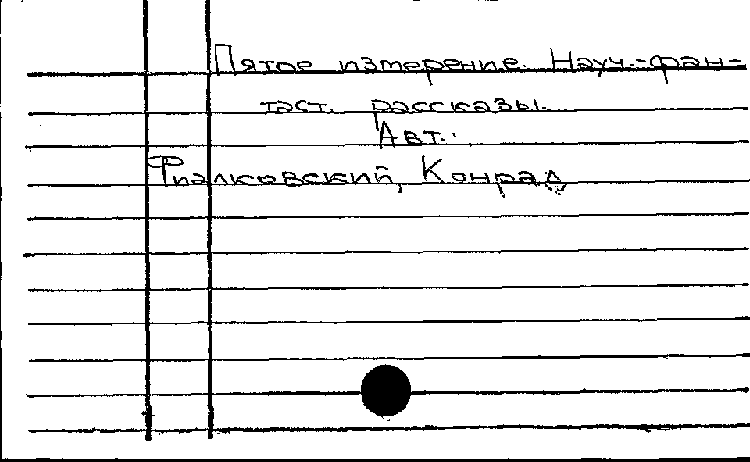 Пятое измерение. Науч.-фан-
таст. рассказы.
Авт.:
Фиалковский, Конрад